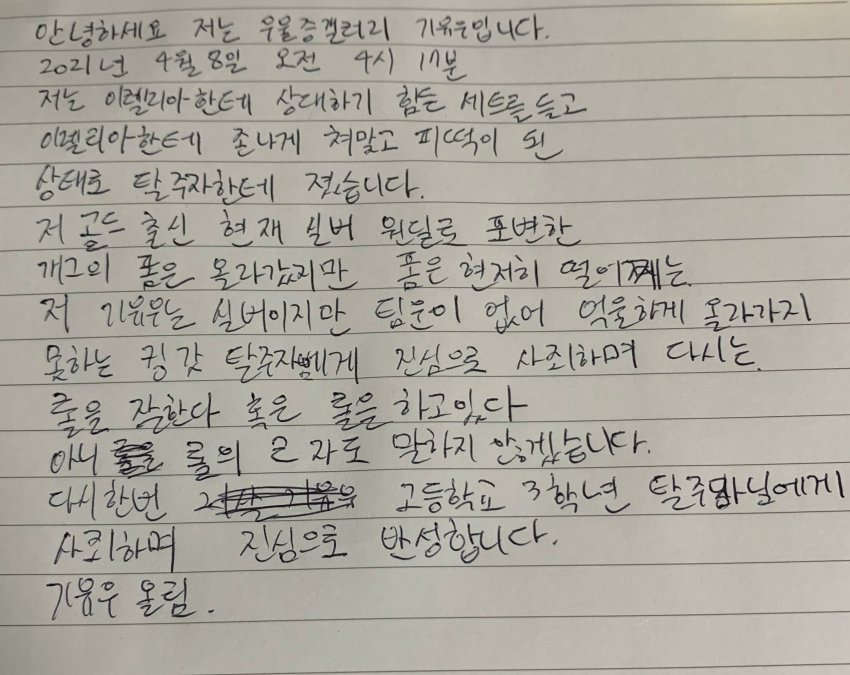 안녕하세요 저는 우울증갤러리 기유우입니다.
2021년 4월 8일 오전 4시 17분
저는 이렐리아한테 상대하기 힘든 세트를 들고
이렐리아한테 존나게 쳐맞고 피떡이 된
상태로 탈주자한테 졌습니다.
저 골드 출신 현재 실버 원딜로 포변한
개그의 폼은 올라갔지만 폼은 현저히 떨어지는
저 기유우는 실버이지만 팀운이 없어 억울하게 올라가지
못하는 킹갓 탈주자에게 진심으로 사죄하며 다시는
롤을 잘한다 혹은 롤을 하고있다
아니 롤의 ㄹ 자도 말하지 않겠습니다.
다시한번 고등학교 3학년 탈주자님에게
사죄하며 진심으로 반성합니다.
기유우 올림.